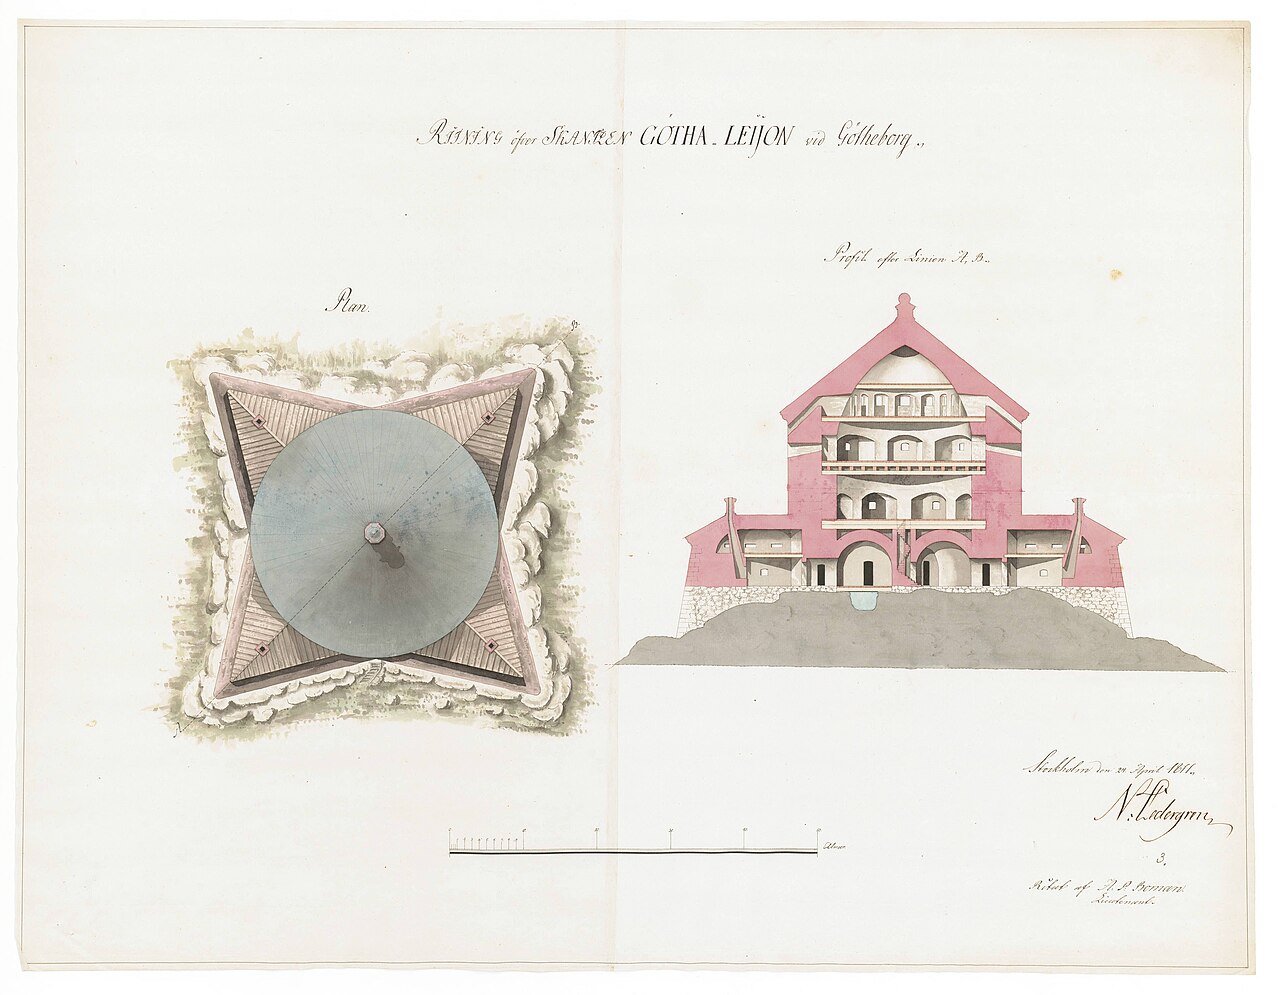 Ritning öfver Skantzen GÖTHA_LEIJON vid Götheborg.
Profil efter Linien A, B.
Plan.
B.
A.
Alnar
Stockholm den 24 April 1811.
3.
Ritat af A. P. Boman
Lieutenant.